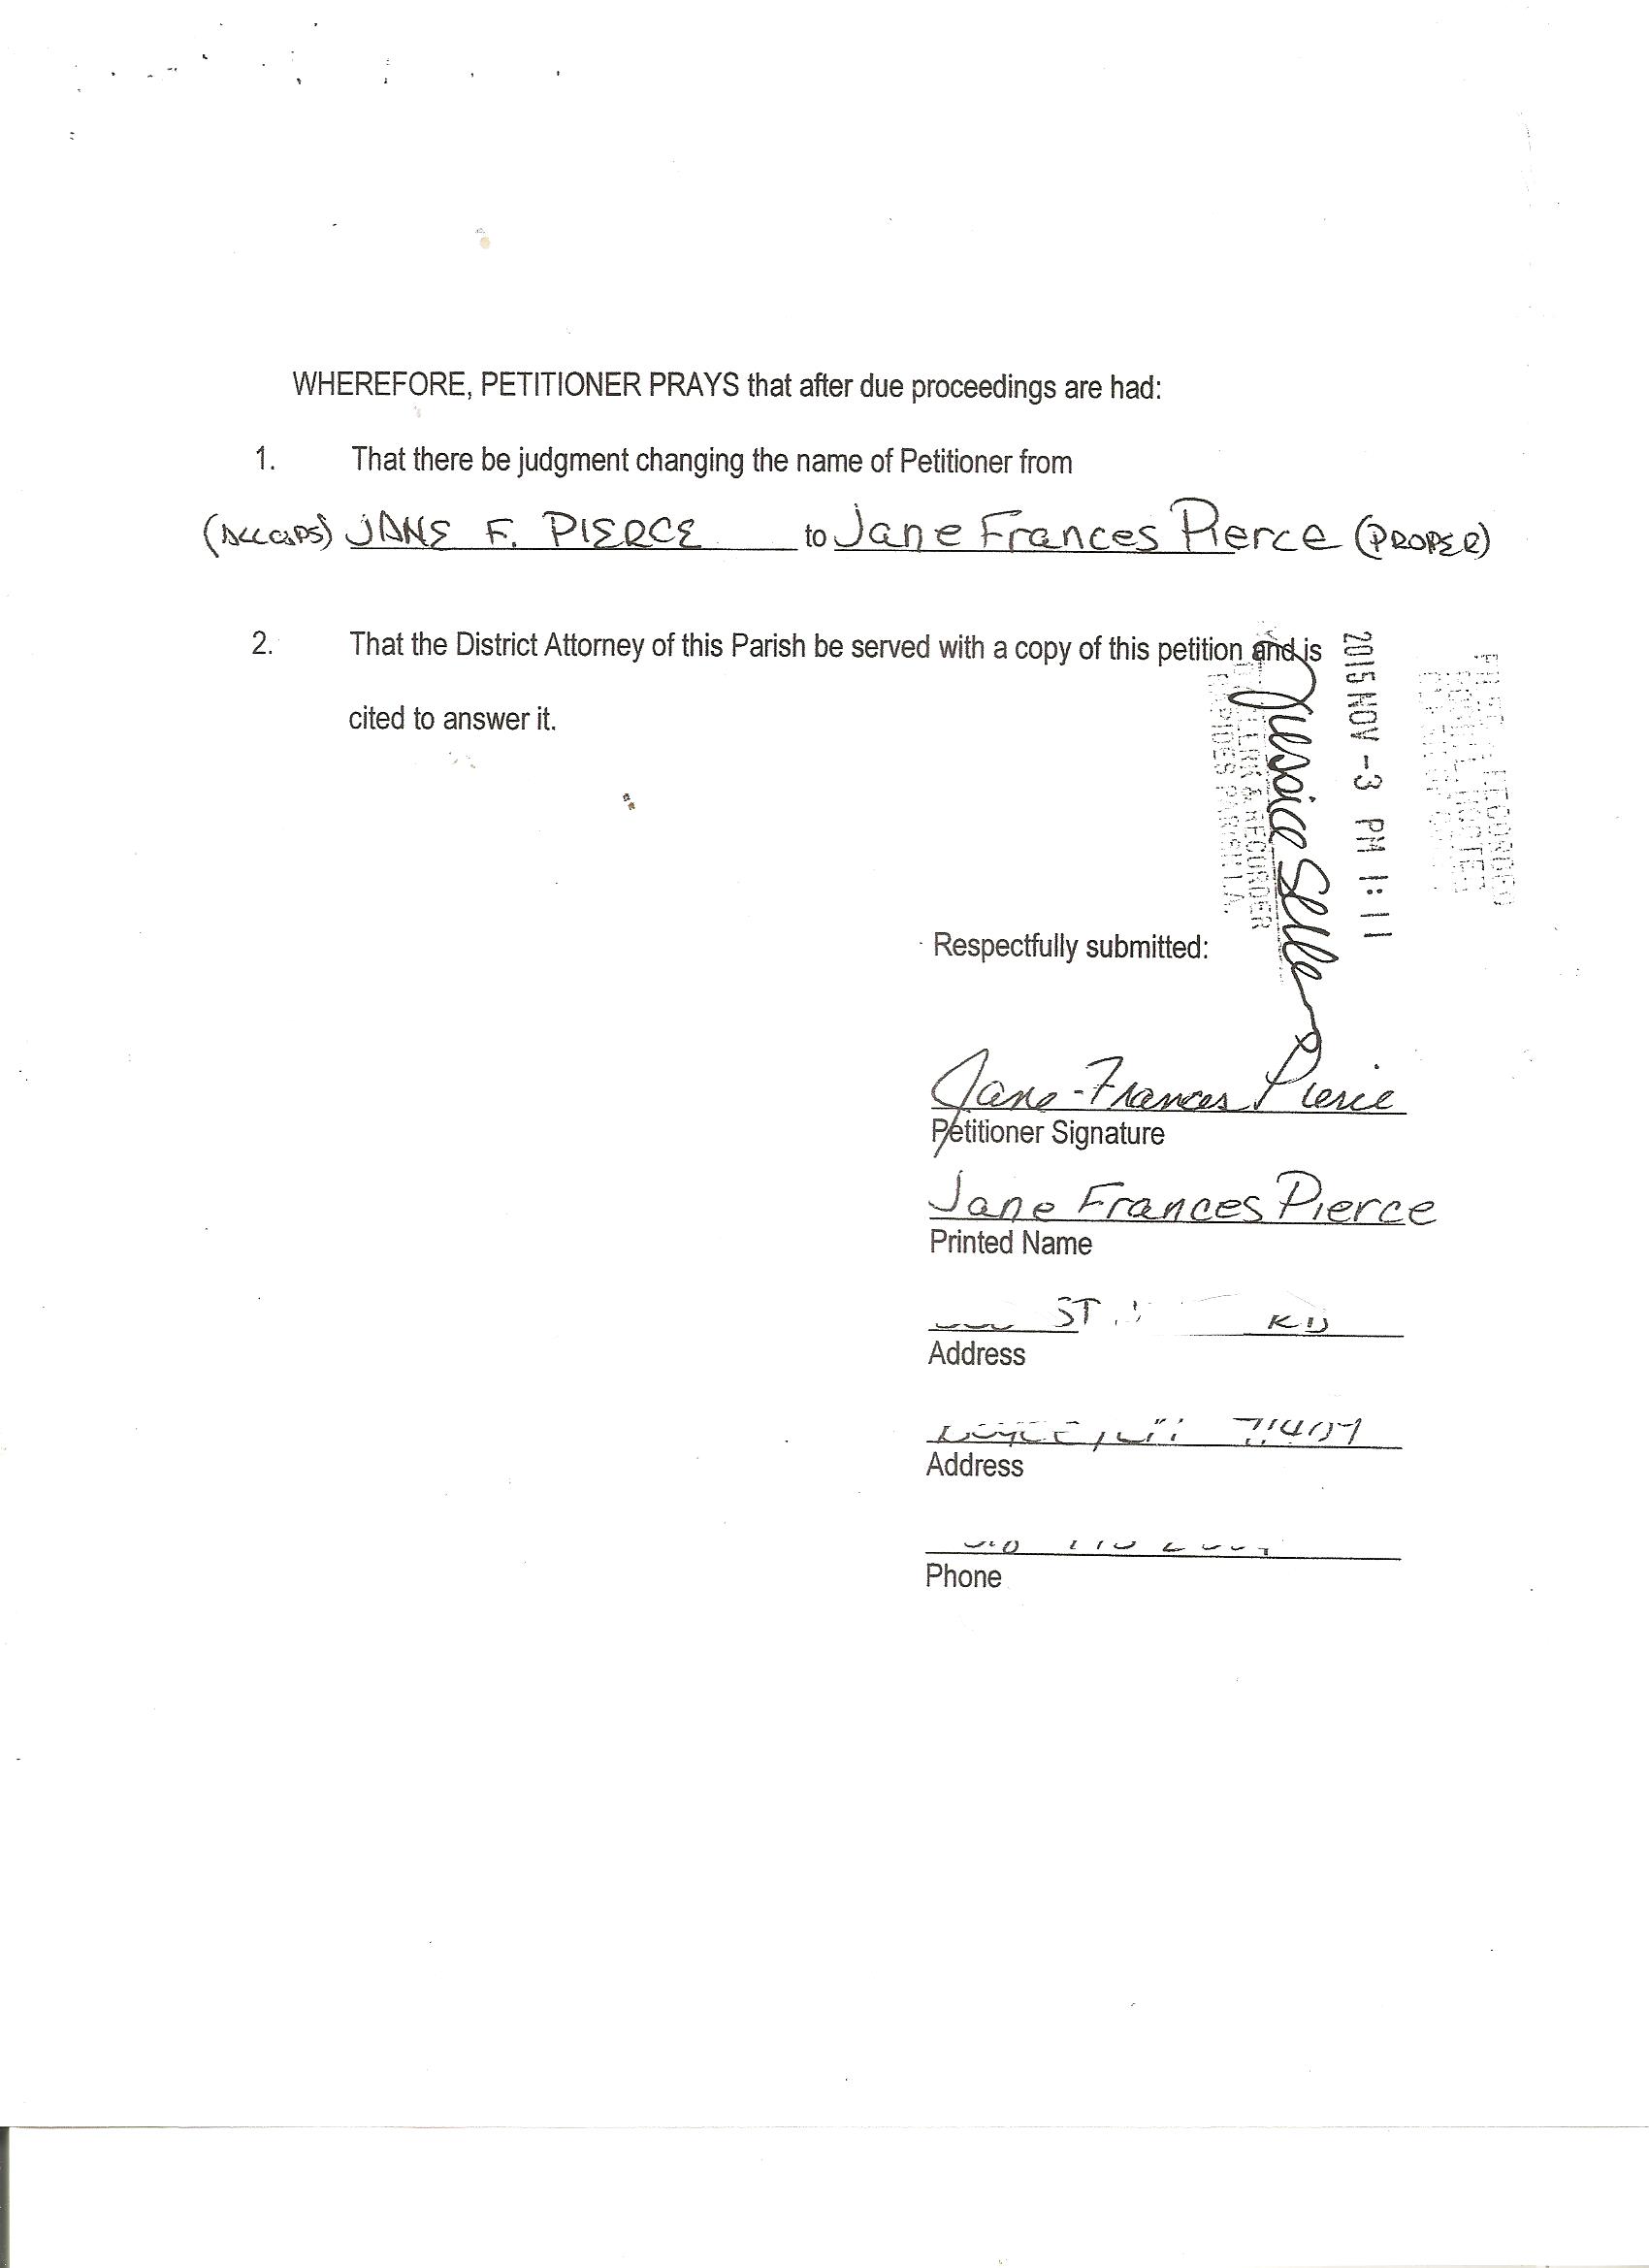 WHEREFORE, PETITIONER PRAYS that after due proceedings are had:
1. That there be judgment changing the name of Petitioner from
(ALL CAPS) JANE F. PIERCE to Jane Frances Pierce (PROPER)
2. That the District Attorney of this Parish be served with a copy of this petition and is
cited to answer it.
2015 NOV -3 PM 1:11
& RECORDER
PARISH LA.
Respectfully submitted:
Jane-Frances Pierce
Petitioner Signature
Jane Frances Pierce
Printed Name
ST
Address
Address
Phone